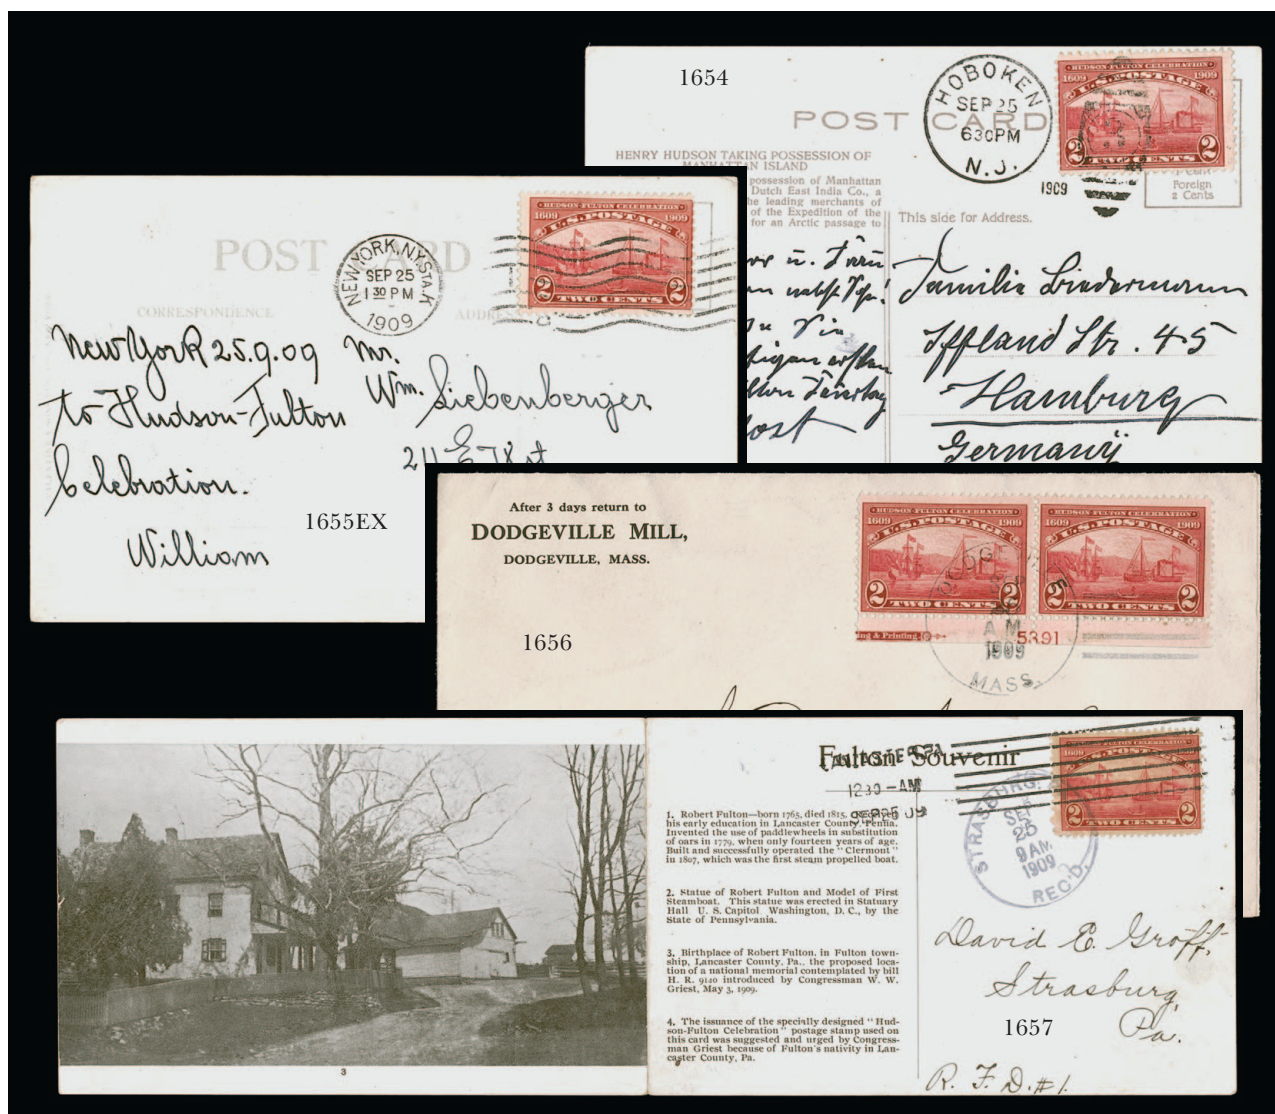 1654
POST CARD
HENRY HUDSON TAKING POSSESSION OF
MANHATTAN ISLAND
possession of Manhattan
Dutch East India Co., a
he leading merchants of
of the Expedition of the
for an Arctic passage to
HOBOKEN
SEP 25
630PM
N.J.
1909
HUDSON-FULTON CELEBRATION
1609 1909
U.S. POSTAGE
2 2
TWO CENTS
Foreign
2 Cents
This side for Address.
Familie Biedermann
Iffland Str. 45
Hamburg
Germany
POST CARD
CORRESPONDENCE
ADDRESS
NEW YORK, N.Y. STA. K
SEP 25
1 30 PM
1909
HUDSON-FULTON CELEBRATION
1609 1909
U.S. POSTAGE
2 2
TWO CENTS
New York 25.9.09
to Hudson-Fulton
Celebration.
William
Mr.
Wm. Siebenberger
211 E 78 st
1655EX
After 3 days return to
DODGEVILLE MILL,
DODGEVILLE, MASS.
1656
HUDSON-FULTON CELEBRATION
1609 1909
U.S. POSTAGE
2 2
TWO CENTS
HUDSON-FULTON CELEBRATION
1609 1909
U.S. POSTAGE
2 2
TWO CENTS
ing & Printing
5391
A M
1909
MASS.
3
Fulton Souvenir
1230-AM
STRASBURG,
SEP
25
9 AM
1909
REC'D.
HUDSON-FULTON CELEBRATION
1609
U.S. POSTAGE
2 2
TWO CENTS
1. Robert Fulton—born 1765, died 1815. Received
his early education in Lancaster County, Penna.
Invented the use of paddlewheels in substitution
of oars in 1779, when only fourteen years of age.
Built and successfully operated the "Clermont"
in 1807, which was the first steam propelled boat.
2. Statue of Robert Fulton and Model of First
Steamboat. This statue was erected in Statuary
Hall U. S. Capitol Washington, D. C., by the
State of Pennsylvania.
3. Birthplace of Robert Fulton, in Fulton town-
ship, Lancaster County, Pa., the proposed loca-
tion of a national memorial contemplated by bill
H. R. 9140 introduced by Congressman W. W.
Griest, May 3, 1909.
4. The issuance of the specially designed "Hud-
son-Fulton Celebration" postage stamp used on
this card was suggested and urged by Congress-
man Griest because of Fulton's nativity in Lan-
caster County, Pa.
David E. Groff,
Strasburg,
Pa.
1657
R. F. D. #1.